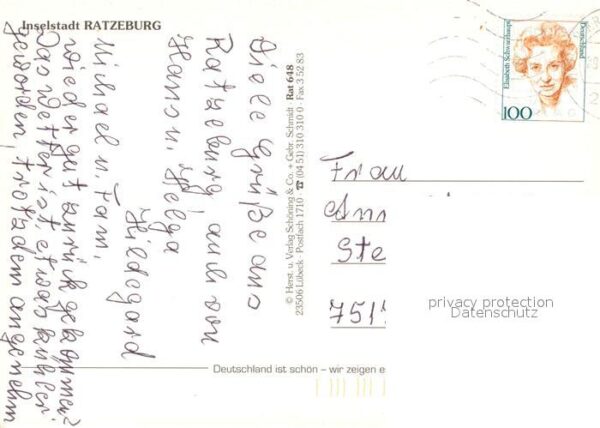 Inselstadt RATZEBURG
Viele Grüße aus
Ratzeburg, auch von
Hans u. Helga
Hildegard
Michael u. Fam,
wieder gut zurück gekommen?
Das Wetter ist, etwas kühler
geworden, trotzdem angenehm
© Herst. u. Verlag Schöning & Co. + Gebr. Schmidt · Rat 648
23506 Lübeck · Postfach 1710 · ☎ (04 51) 310 310 0 · Fax 3 52 83
Elisabeth Schwarzhaupt
Deutschland
100
Frau
Ann
Ste
751
privacy protection
Datenschutz
Deutschland ist schön – wir zeigen e